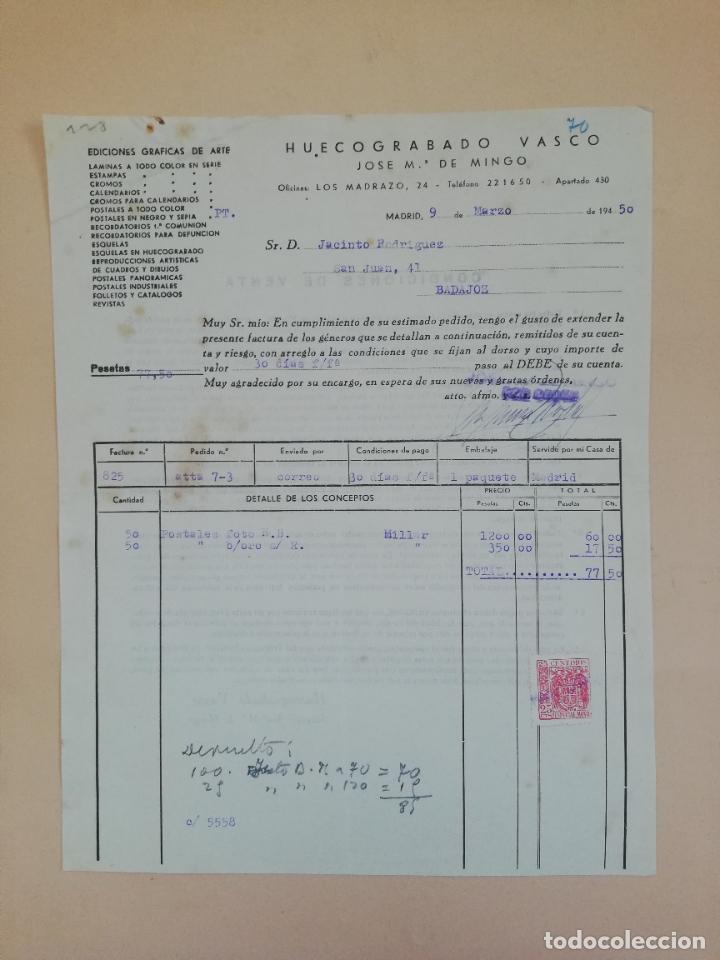 70
EDICIONES GRAFICAS DE ARTE
LAMINAS A TODO COLOR EN SERIE
ESTAMPAS " " " "
CROMOS " " " "
CALENDARIOS " " " "
CROMOS PARA CALENDARIOS "
POSTALES A TODO COLOR "
POSTALES EN NEGRO Y SEPIA " PT.
RECORDATORIOS 1.ª COMUNION
RECORDATORIOS PARA DEFUNCION
ESQUELAS
ESQUELAS EN HUECOGRABADO
REPRODUCCIONES ARTISTICAS
DE CUADROS Y DIBUJOS
POSTALES PANORAMICAS
POSTALES INDUSTRIALES
FOLLETOS Y CATALOGOS
REVISTAS
HUECOGRABADO VASCO
JOSE M.ª DE MINGO
Oficinas: LOS MADRAZO, 24 - Teléfono 221650 - Apartado 430
MADRID, 9 de Marzo de 1945 50
Sr. D. Jacinto Rodriguez
San Juan, 41
BADAJOZ
Muy Sr. mío: En cumplimiento de su estimado pedido, tengo el gusto de extender la
presente factura de los géneros que se detallan a continuación, remitidos de su cuen-
ta y riesgo, con arreglo a las condiciones que se fijan al dorso y cuyo importe de
Pesetas 77,50 valor 30 días f/fª paso al DEBE de su cuenta.
Muy agradecido por su encargo, en espera de sus nuevas y gratas órdenes,
atto. afmo.
Factura n.º Pedido n.º Enviado por Condiciones de pago Embalaje Servido por mi Casa de
825 atta 7-3 correo 30 días f/fª 1 paquete Madrid
Cantidad DETALLE DE LOS CONCEPTOS PRECIO TOTAL
Pesetas Cts. Pesetas Cts.
50 Postales foto B.B. Millar 1200 00 60 00
50 " b/oro s/ R. " 350 00 17 50
TOTAL.......... 77 50
CENTIMOS
25 25
ESPECIAL MOVIL
Devuelto:
100. foto B. N a 70 = 70
25 " " " 120 = 15
85
c/ 5558
todocoleccion
todocoleccion.net